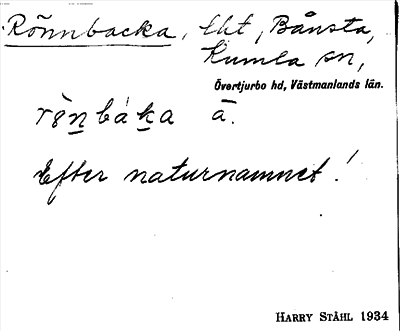 Rönnbacka, lht, Bånsta,
Kumla sn,
Övertjurbo hd, Västmanlands län.
ā.
Efter naturnamnet!
HARRY STÅHL 1934